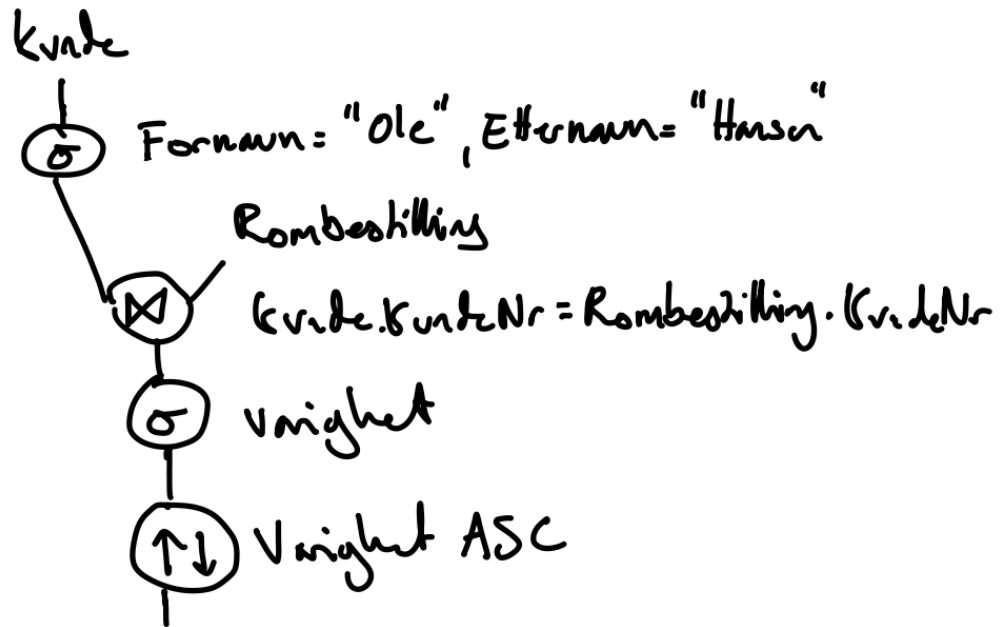 Kunde
σ Fornavn = "Ole", Etternavn = "Hansen"
Rombestilling
⋈ Kunde.KundeNr = Rombestilling.KundeNr
σ Varighet
↑↓ Varighet ASC